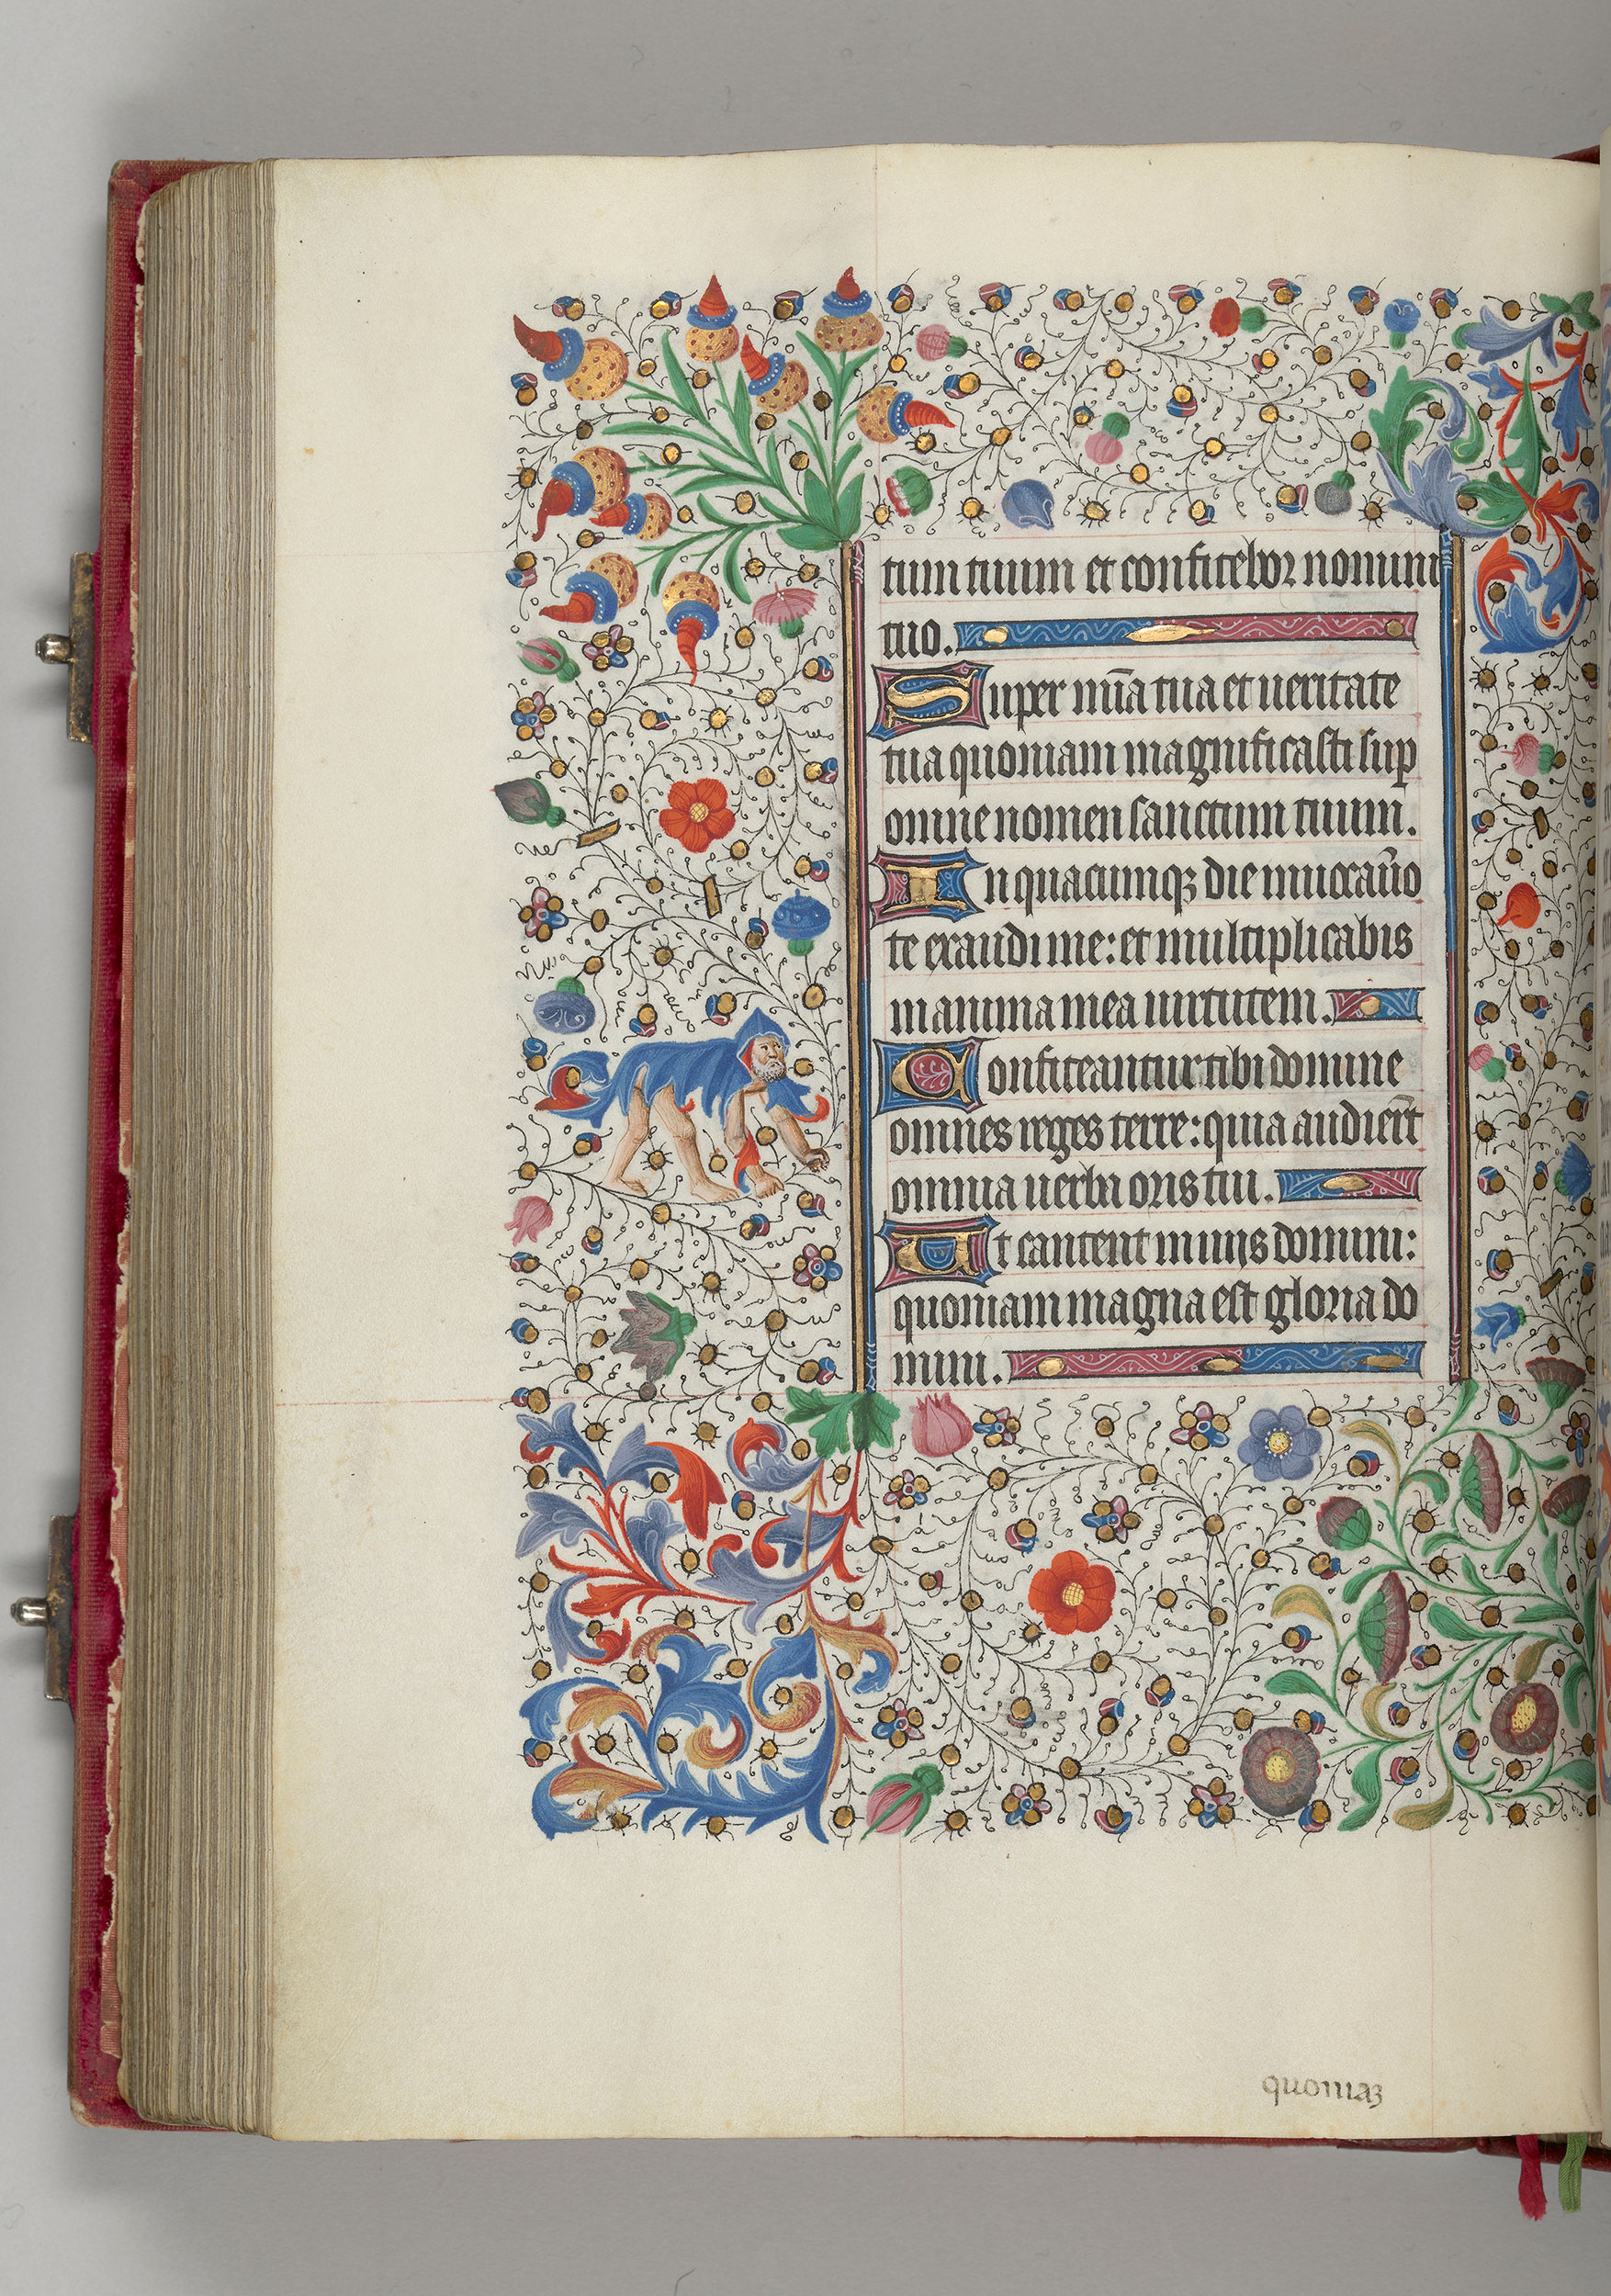 tum tuum et confitebor nomini
tuo.
Super mīa tua et ueritate
tua quoniam magnificasti sup
omne nomen sanctum tuum.
In quacumqꝫ die inuocaūo
te exaudi me: et multiplicabis
in anima mea uirtutem.
Confiteantur tibi domine
omnes reges terre: quia audier̄t
omnia uerba oris tui.
Et cantent in uijs domini:
quoniam magna est gloria do
mini.
quoniaꝫ